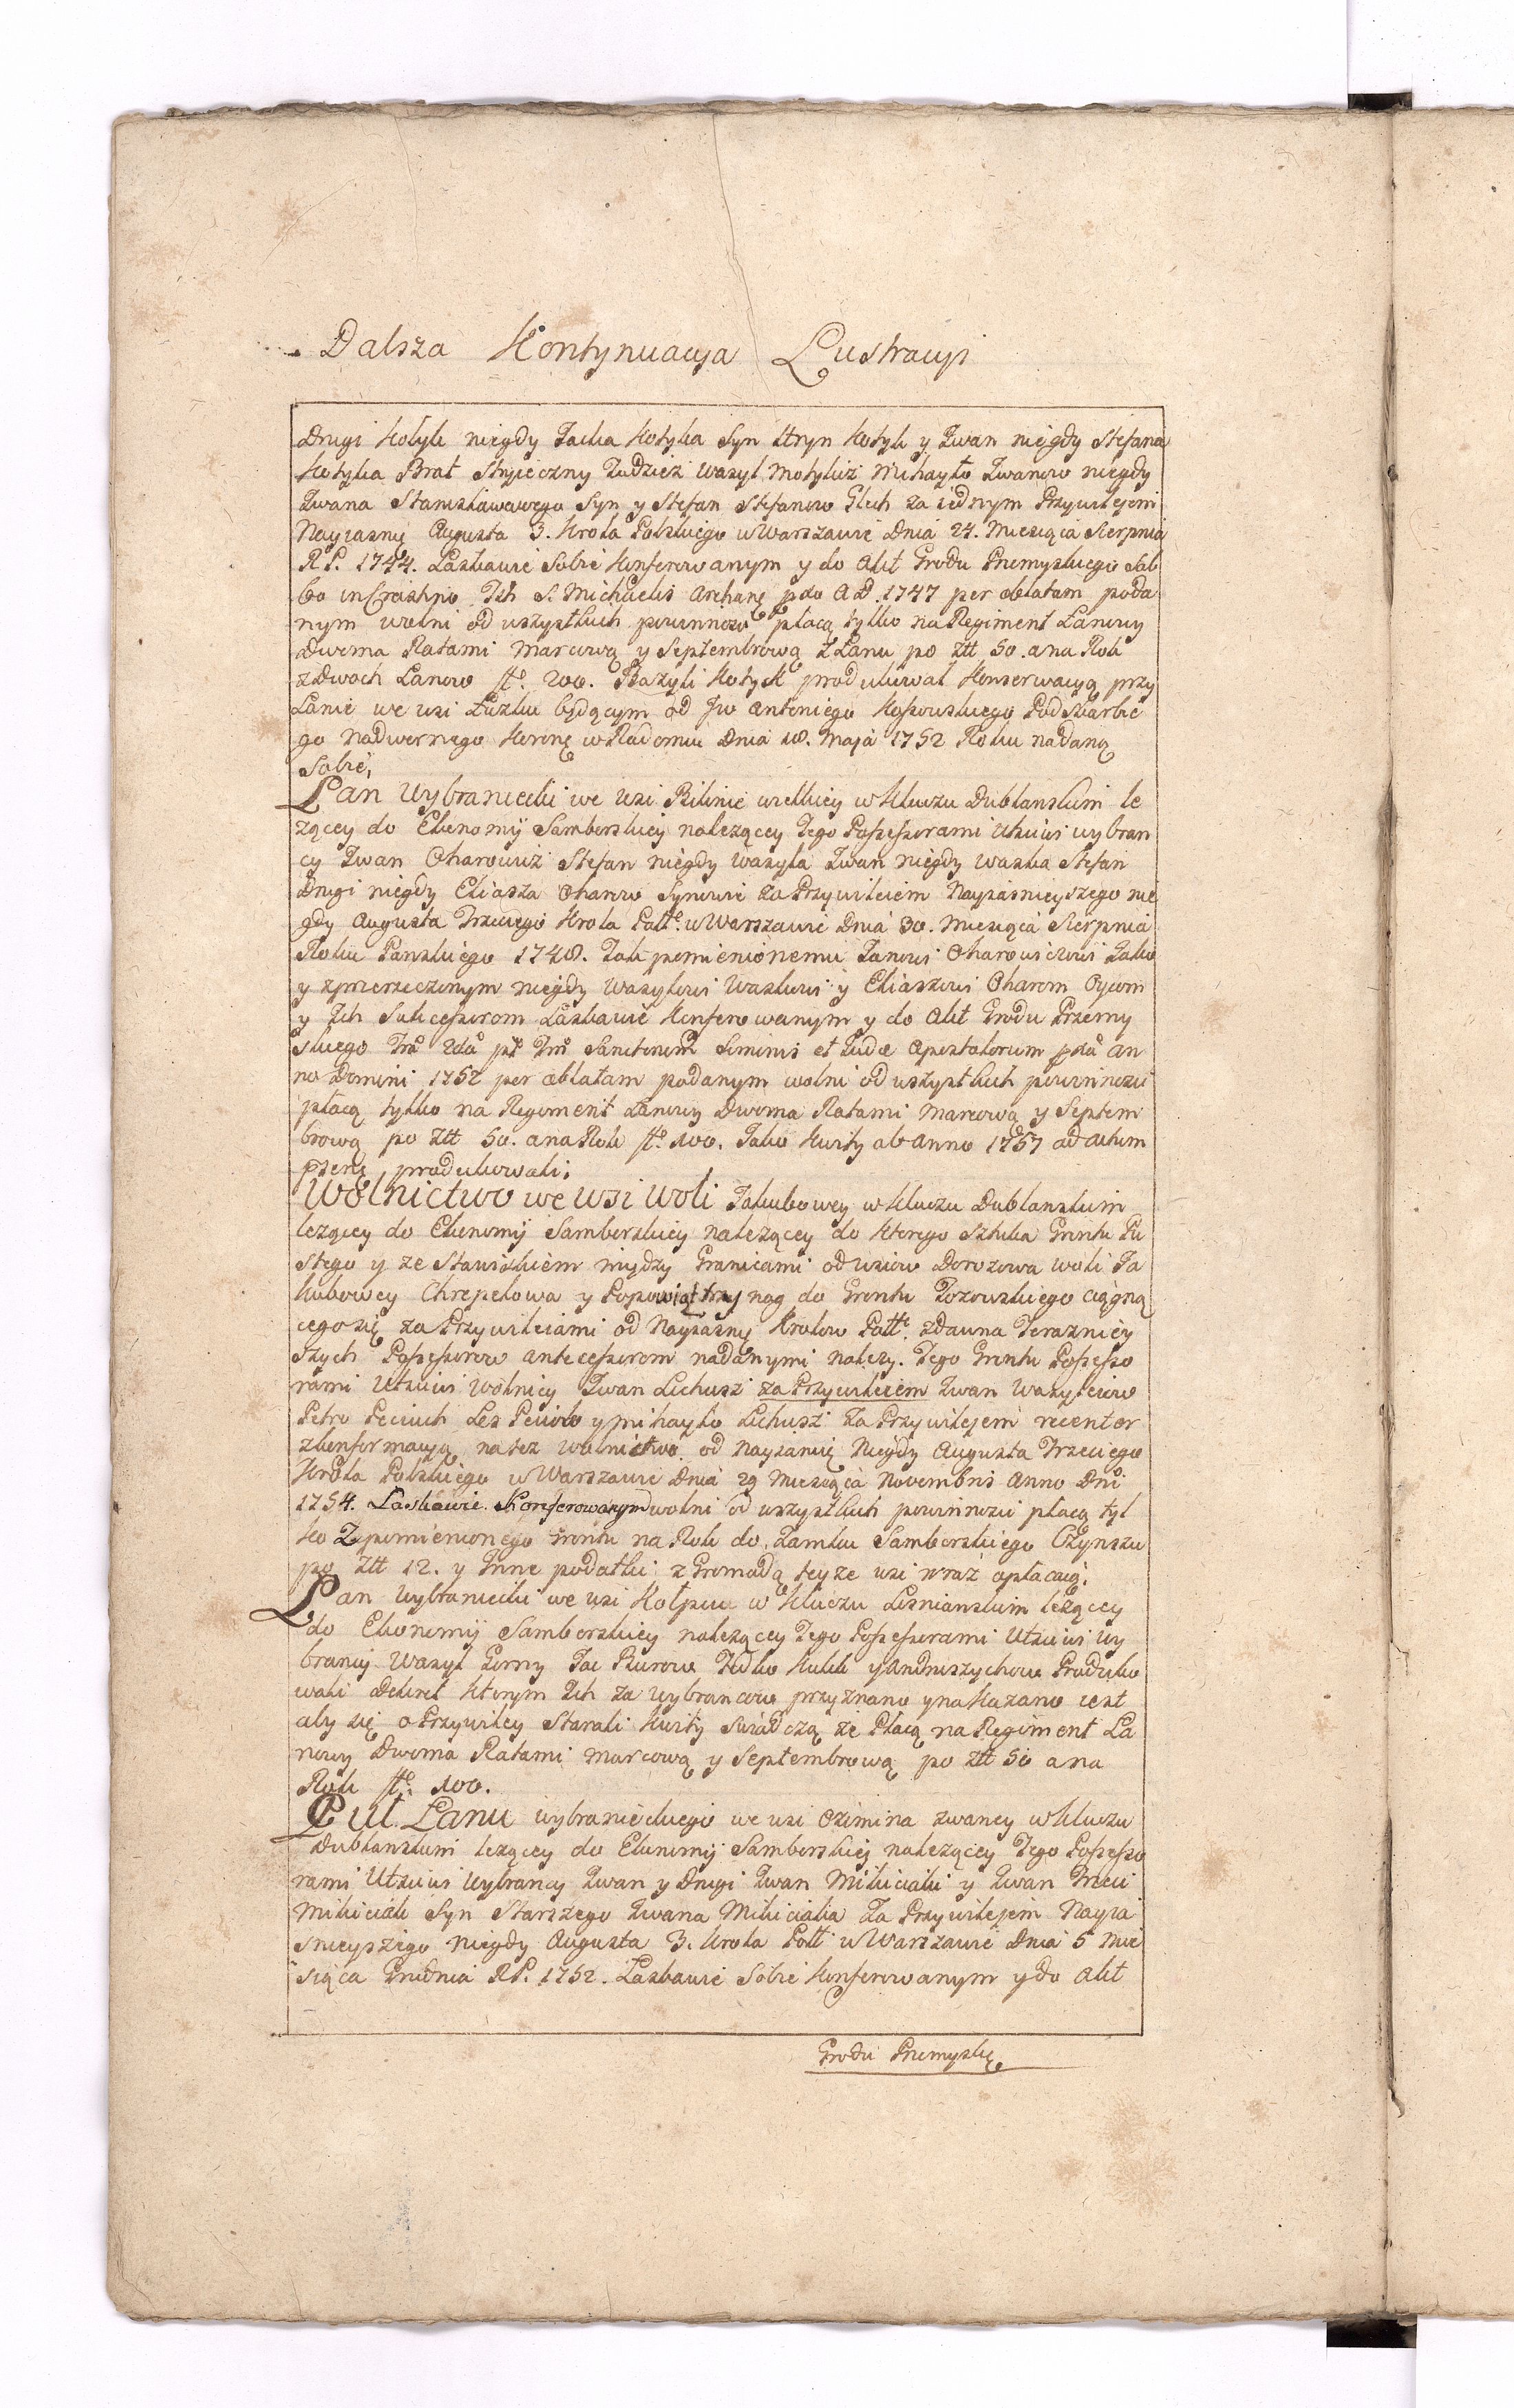 Dalsza Kontynuacya Lustracyi
Drugi Kotyk niegdy Jacka Kotyka Syn Hryn Kotyk y Iwan niegdy Stefana
Kotyka Brat Stryieczny Tudziesz Wasyl Motykisz Mihayło Iwanow niegdy
Iwana Stanisławowego Syn y Stefan Stefanow Gluch za iednym Przywilejem
Nayiasnię Augusta 3. Krola Polskiego w Warszawie Dnia 24. Miesiąca Sierpnia
R P. 1744. Łaskawie Sobie Konferowanym y do Akt Grodu Przemyskiego Sab
bo in Crastino Fth S. Michaelis Archanę pxo A D. 1747 per oblatam poda
nym wolni od wszystkich powinnosci płacą tylko na Regiment Łanowy
Dwoma Ratami Marcową y Septembrową z Łanu po Złł 50. a na Rok
z Dwoch Łanow fłe. 200. Bazyli Kotyk produkował Konserwacyą przy
Łanie we wsi Łuzku będącym od Jw Antoniego Kossowskiego Podskarbie
go Nadwornego Koronę w Radomiu Dnia 18. Maja 1752 Roku nadaną
Sobie,
Łan Wybraniecki we Wsi Bilinie wielkiey w Kluczu Dublanskim le
zącey do Ekonomij Samborskiey nalezącey Tego Possessorami Utsciwi wybran
cy Iwan Oharowicz Stefan niegdy Wasyla Iwan niegdy Waska Stefan
Drugi niegdy Eliasza Oharow Synowie za Przywileiem Nayiasnieyszego nie
gdy Augusta Trzeciego Krola Polle. w Warszawie Dnia 30. Miesiąca Sierpnia
Roku Panskiego 1748. Tak pomienionemu Janowi Oharowiczowi Jako
y zprzerzeczonym niegdy Wasylowi Waskowi y Eliaszowi Oharom Oycom
y Ich Sukcessorom Łaskawie Konferowanym y do Akt Grodu Przemy
skiego Fra 2da pt Fm Sanctorum Simonis et Judæ Apostolorum pxa An
no Domini 1752 per oblatam podanym wolni od wszystkich powinnosci
płacą tylko na Regiment Łanowy Dwoma Ratami Marcową y Septem
brową po Złł 50. a na Rok fłe. 100. Jako Kwity ab Anno 1757 ad actum
psenę produkowali;
Wolnictwo we Wsi Woli Jakubowey w Kluczu Dublanskim
lezącey do Ekonomij Samborskiey nalezącey do ktorego Sztuka Gruntu Pu
stego y ze Stawiskiem między Granicami od wsiow Dorozowa Woli Ja
kubowey Chrepelowa y Popowiąt trzy nag do Gruntu Tozowskiego ciągną
cego się za Przywileiami od Nayiasny Krolow Polle. zdawna Terazniey
szych Possessorow antecessorom nadanymi nalezy. Tego Gruntu Possesso
rami Utsciwi Wolnicy Iwan Lichusz za Przywileiem Iwan Wasylciow
Petro Peciuch Les Peciow y Mihayło Lichusz Za Przywilejem recenter
z konfirmacyą na tez wolnictwo od Nayiasnię Niegdy Augusta Trzeciego
Krola Polskiego w Warszawie Dnia 29 Miesiąca Novembris Anno Dni
1754. Łaskawie Konferowanym wolni od wszystkich powinnosci płacą tyl
ko Zpomienionego Gruntu na Rok do Zamku Samborskiego Czynszu
po Złł 12. y Inne podatki z Gromadą teyze wsi wraz opłacaią;
Łan Wybraniecki we wsi Kołpcu w Kluczu Lisnianskim lezącey
do Ekonomij Samborskiey nalezącey Tego Possessorami Utsciwi Wy
brancy Wasyl Gorny Jac Rurow Fedko Kulik y Andruszychow Produko
wali Dekret ktorym Ich za Wybrancow przyznano y nakazano iest
aby się o Przywiley Starali Kwity Swiadczą ze Płacą na Regiment Ła
nowy Dwoma Ratami Marcową y Septembrową po Złł 50 a na
Rok fłe. 100.
Puł Łanu wybranieckiego we wsi Ozimina zwaney w Kluczu
Dublanskim lezącey do Ekonomij Samborskiej nalezącey Tego Possesso
rami Utsciwi Wybrancy Iwan y Drugi Iwan Mikiciaki y Iwan Trzeci
Mikiciak Syn Starszego Iwana Mikiciaka Za Przywilejem Nayia
snieyszego Niegdy Augusta 3. Krola Poll w Warszawie Dnia 5 Mie
siąca Grudnia R P. 1752. Łaskawie Sobie Konferowanym y do Akt
Grodu Przemyskię